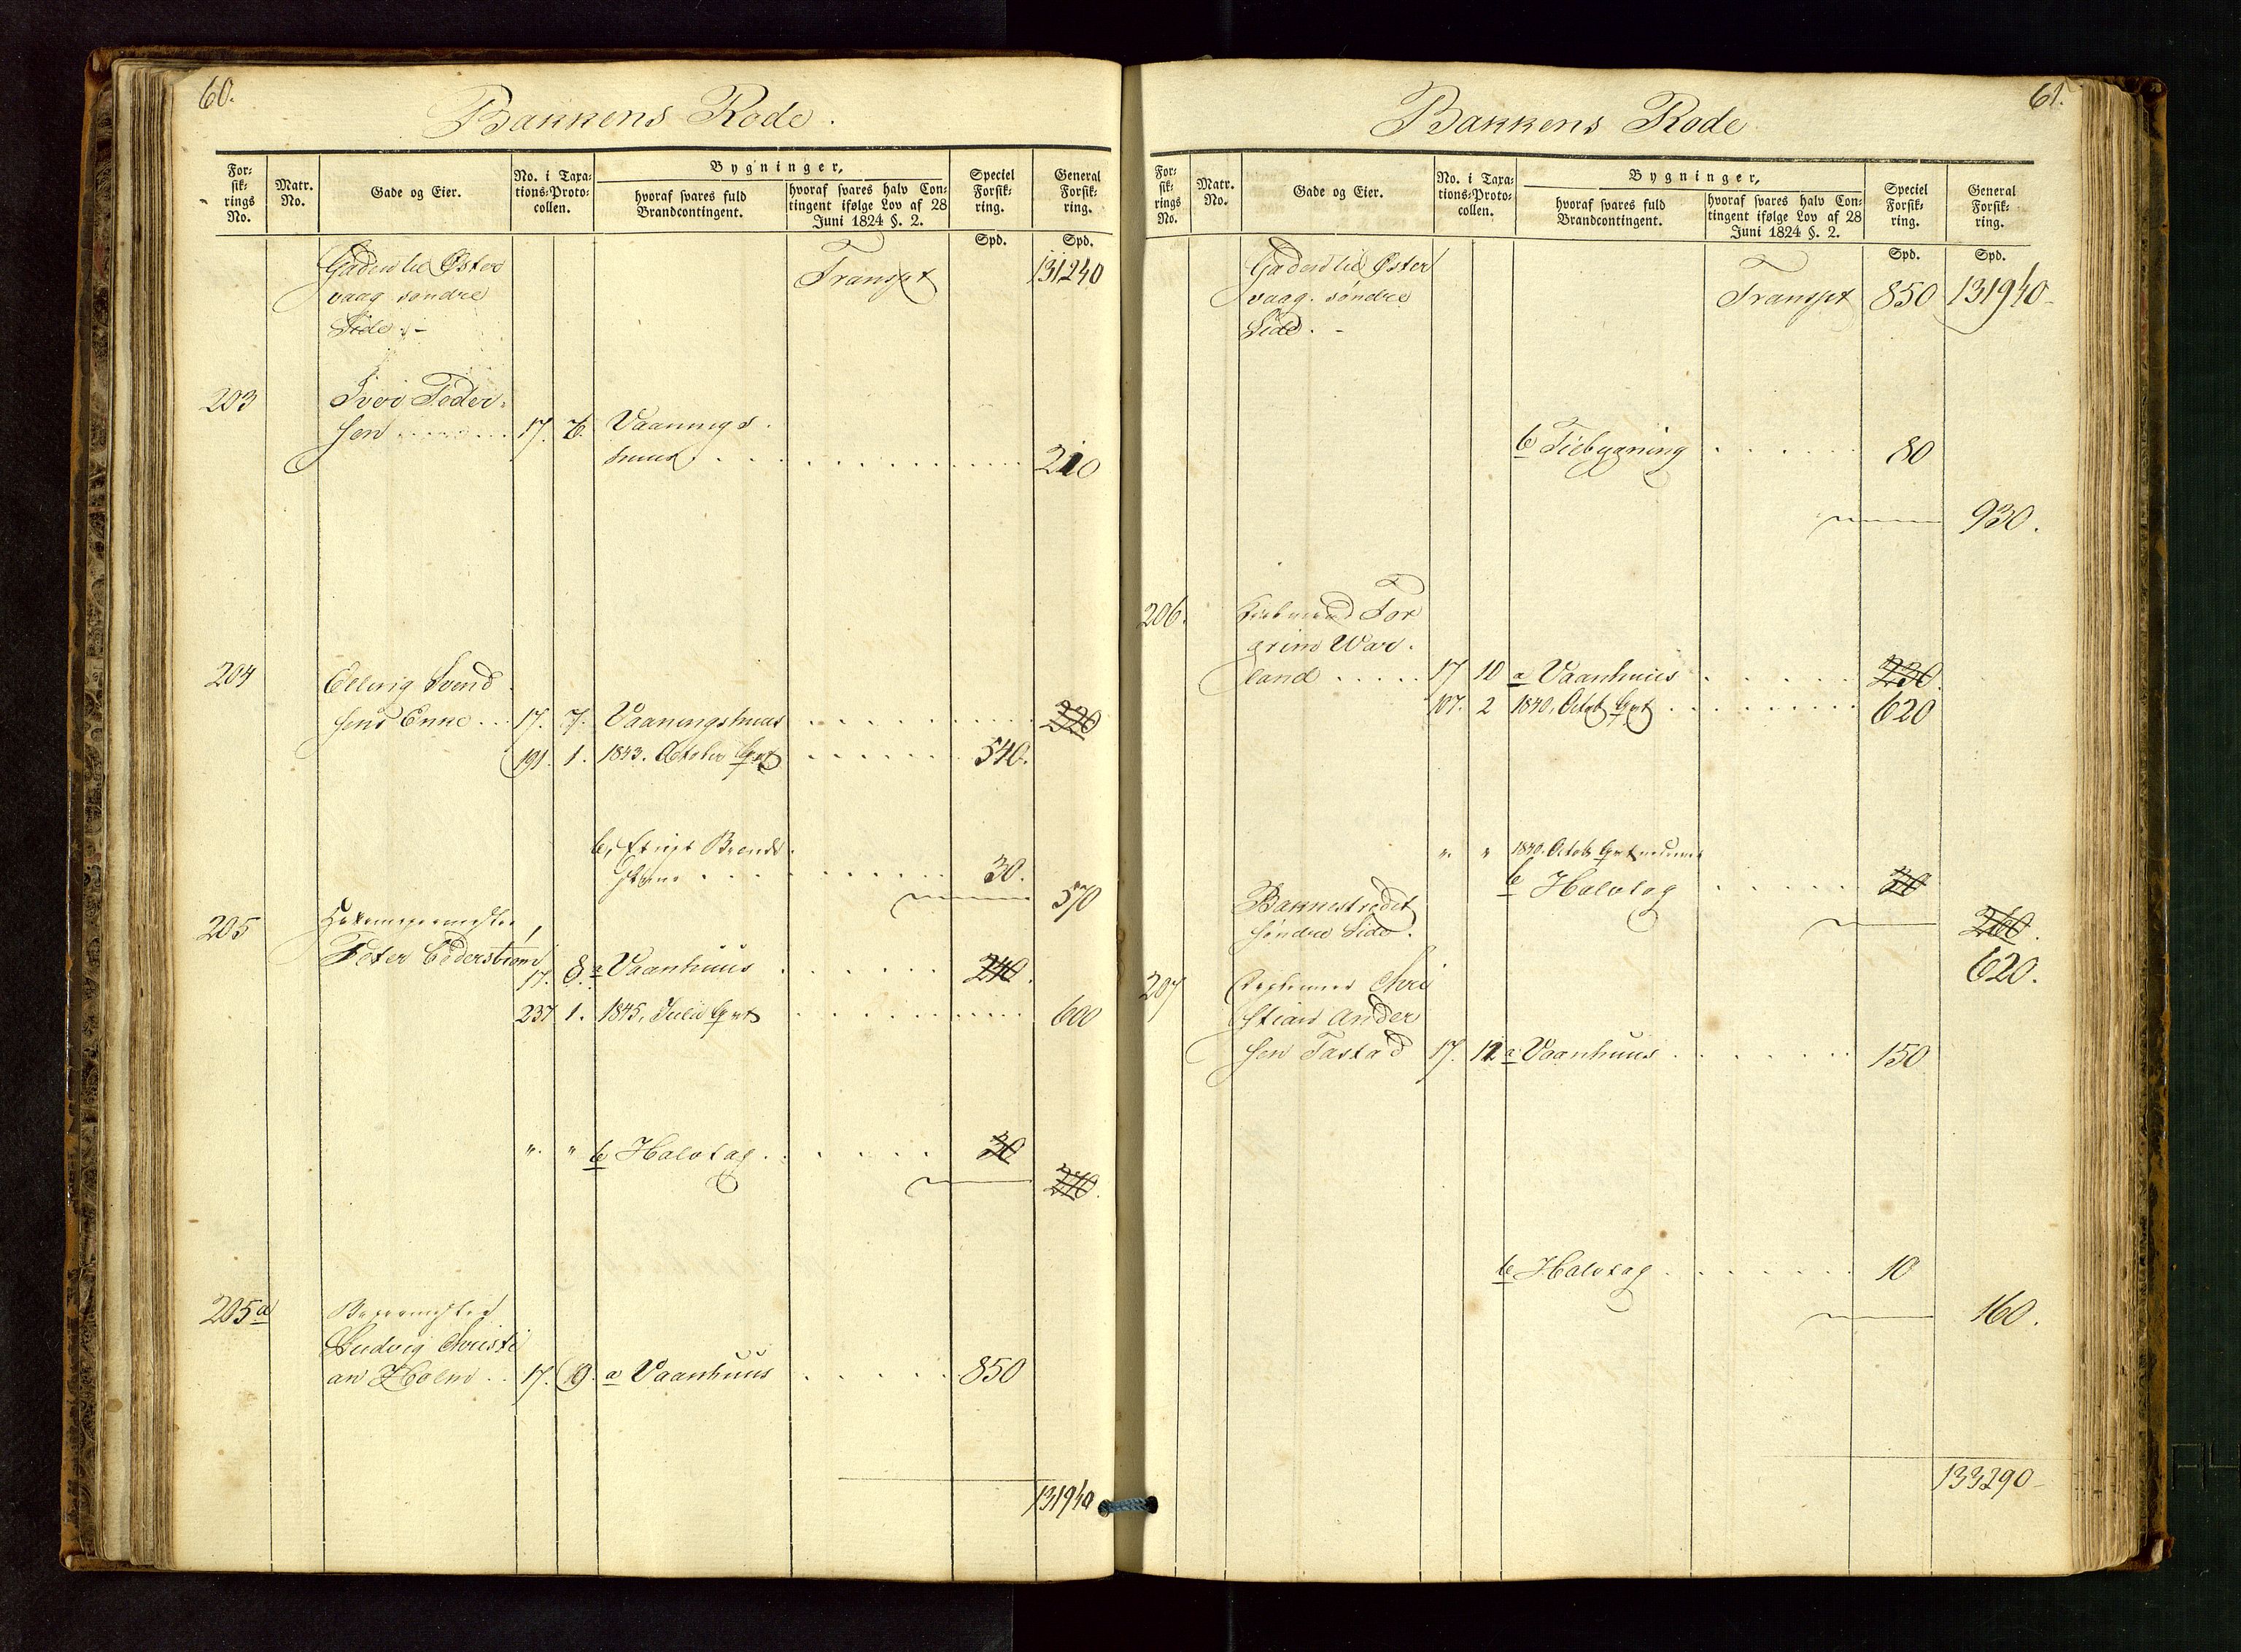 60.
Bakkens Rode.
For=
sik=
rings
No.
Matr.
No.
Gade og Eier.
No. i Taxa=
tions=Proto=
collen.
Bygninger,
hvoraf svares fuld
Brandcontingent.
hvoraf svares halv Con=
tingent ifølge Lov af 28
Juni 1824 §. 2.
Speciel
Forsik=
ring.
General
Forsik=
ring.
Spd. Spd.
Gaden til Øster Transpt 131240
vaag søndre
Side. -
203 Iver Peder=
sen 17. 6. Vaanings
huus 210
204 Ellerig Svend
sens Enke 17. 7. Vaaningshuus 220
191. 1. 1843. October 540.
b, Brand
30.
570
205
Peter Cederstrøm
17. 8. a Vaanhuus 240.
237 1. 1845, Julii 600
" " b Halvtag 30
270.
205a
Ludvig Christi
an Holm 17. 19. a Vaanhuus 850
131940
61.
Bakkens Rode
For=
sik=
rings
No.
Matr.
No.
Gade og Eier.
No. i Taxa=
tions=Proto=
collen.
Bygninger,
hvoraf svares fuld
Brandcontingent.
hvoraf svares halv Con=
tingent ifølge Lov af 28
Juni 1824 §. 2.
Speciel
Forsik=
ring.
General
Forsik=
ring.
Spd. Spd.
Gaden til Øster Transpt 850 131940-
vaag. søndre
Side. -
b Tilbygning 80
930.
206. Tor
grim War=
land 17 10 a Vaanhuus 230.
107. 2 1840, Octob 620
" " 1840. Octob
b Halvtag
Bakkestrædet
søndre Side. 260.
620.
207 Chri
stian Ander
sen Tastad 17. 12 a Vaanhuus 150
b Halvtag 10
160.
133290-